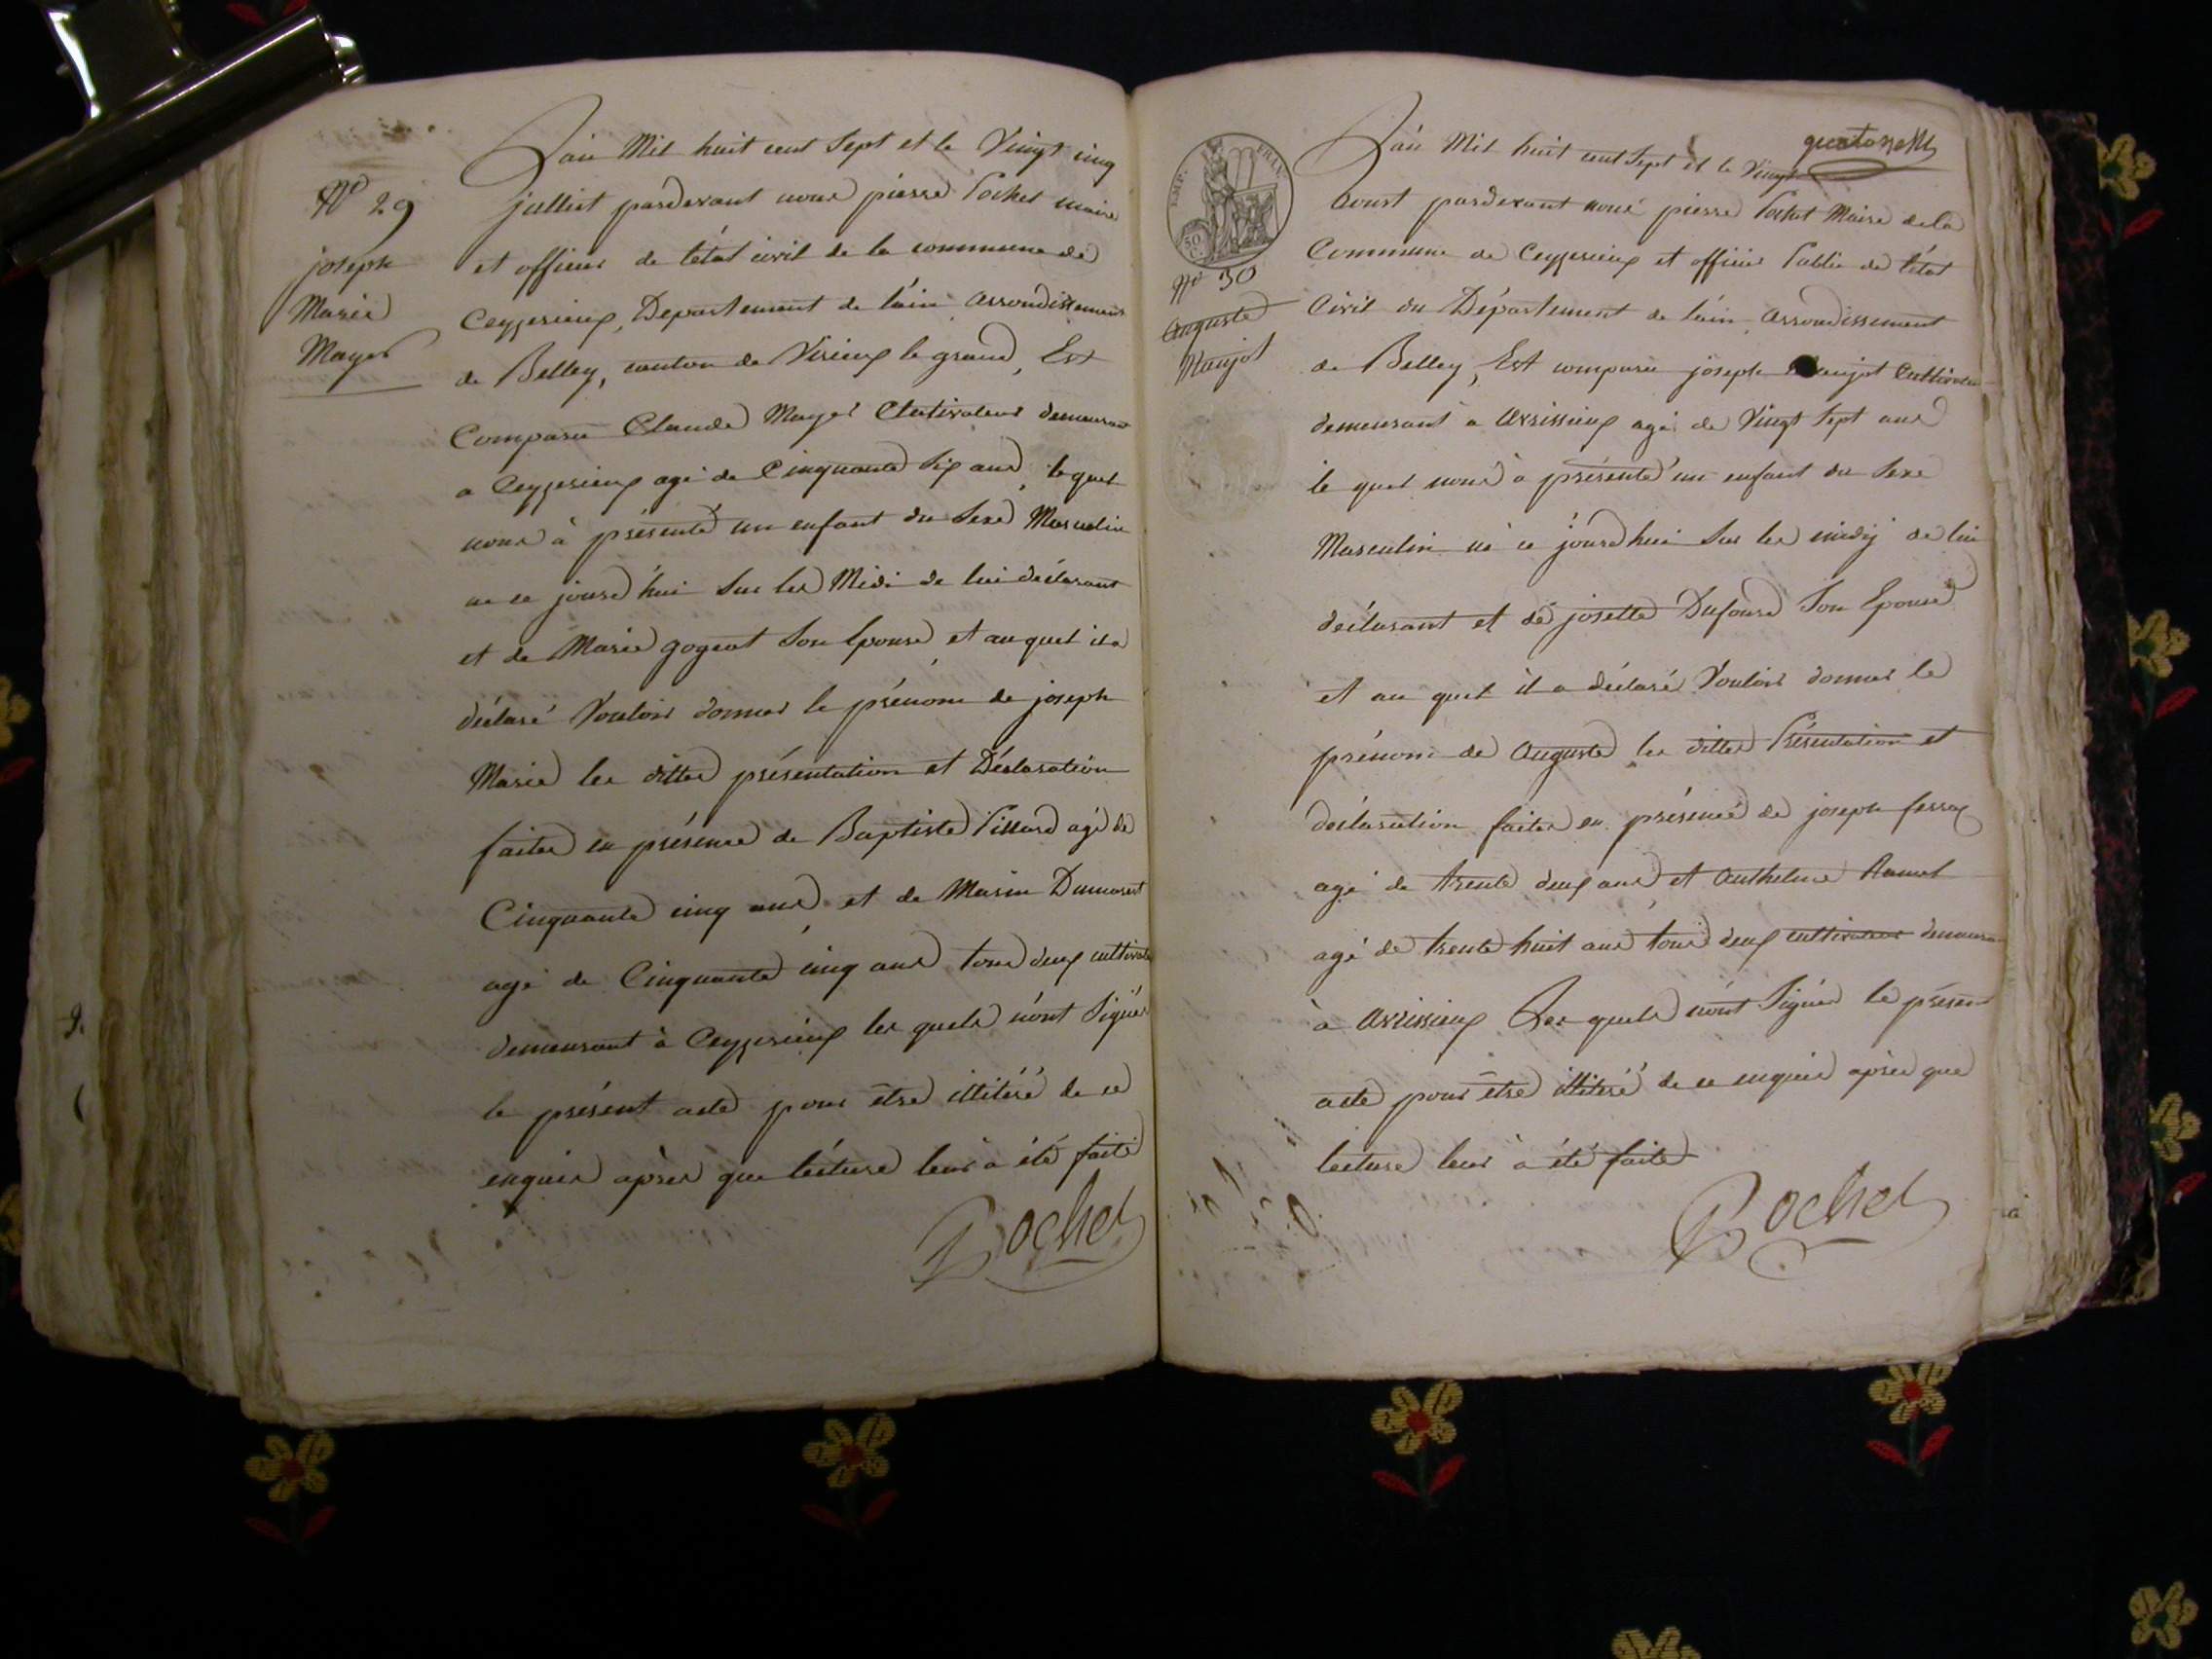 N° 29
joseph
Marie
Mayer
L'an Mil huit cent Sept et le Vingt cinq
julliet pardevant nous pierre Pochet maire
et officier de l'état civil de la commune de
Ceyzerieux, Departement de l'ain, arrondissement
de Belley, canton de Virieux le grand, Est
Comparu Claude Mayer Cultivateur demeurant
a Ceyzerieux agé de Cinquante Six ans, le quel
nous à présenté un enfant du Sexe Masculin
né ce jourd'hui Sur les Midi de lui déclarant
et de Marie gogeat Son Epouse, et auquel il a
déclaré Vouloir donner le prénom de joseph
Marie les dittes présentation et Déclaration
faites en présence de Baptiste agé de
Cinquante cinq ans, et de Marin
agé de Cinquante cinq ans, tous deux cultivat
demeurant à Ceyzerieux les quels n'ont Signés
le présent acte pour être illitéré de ce
enquis après que lécture leur à été faite
Pochet
quatorze
EMP. FRAN.
50 C.
L'an Mil huit cent Sept et le Vingt
Aoust pardevant nous pierre Pochet Maire de la
Commune de Ceyzerieux et officier Public de l'état
N° 30
Auguste
Maujot
Civil du Département de l'ain, arrondissement
de Belley, Est comparu joseph Maujot Cultivateur
demeurant à Avrissieux agé de Vingt Sept ans
le quel nous à présenté un enfant du Sexe
Masculin né ce jourd'hui Sur les midy de lui
déclarant et de josette Dufour Son Epouse
et au quel il a déclaré Vouloir donner le
prénom de Auguste les dittes Présentation et
déclaration faites en présence de joseph
agé de trente deux ans, et Anthelme
agé de trente huit ans tous deux cultivateur demeurant
à Avrissieux Les quels n'ont Signés le présent
acte pour être illitéré de ce enquis après que
lecture leur à été faite
Pochet